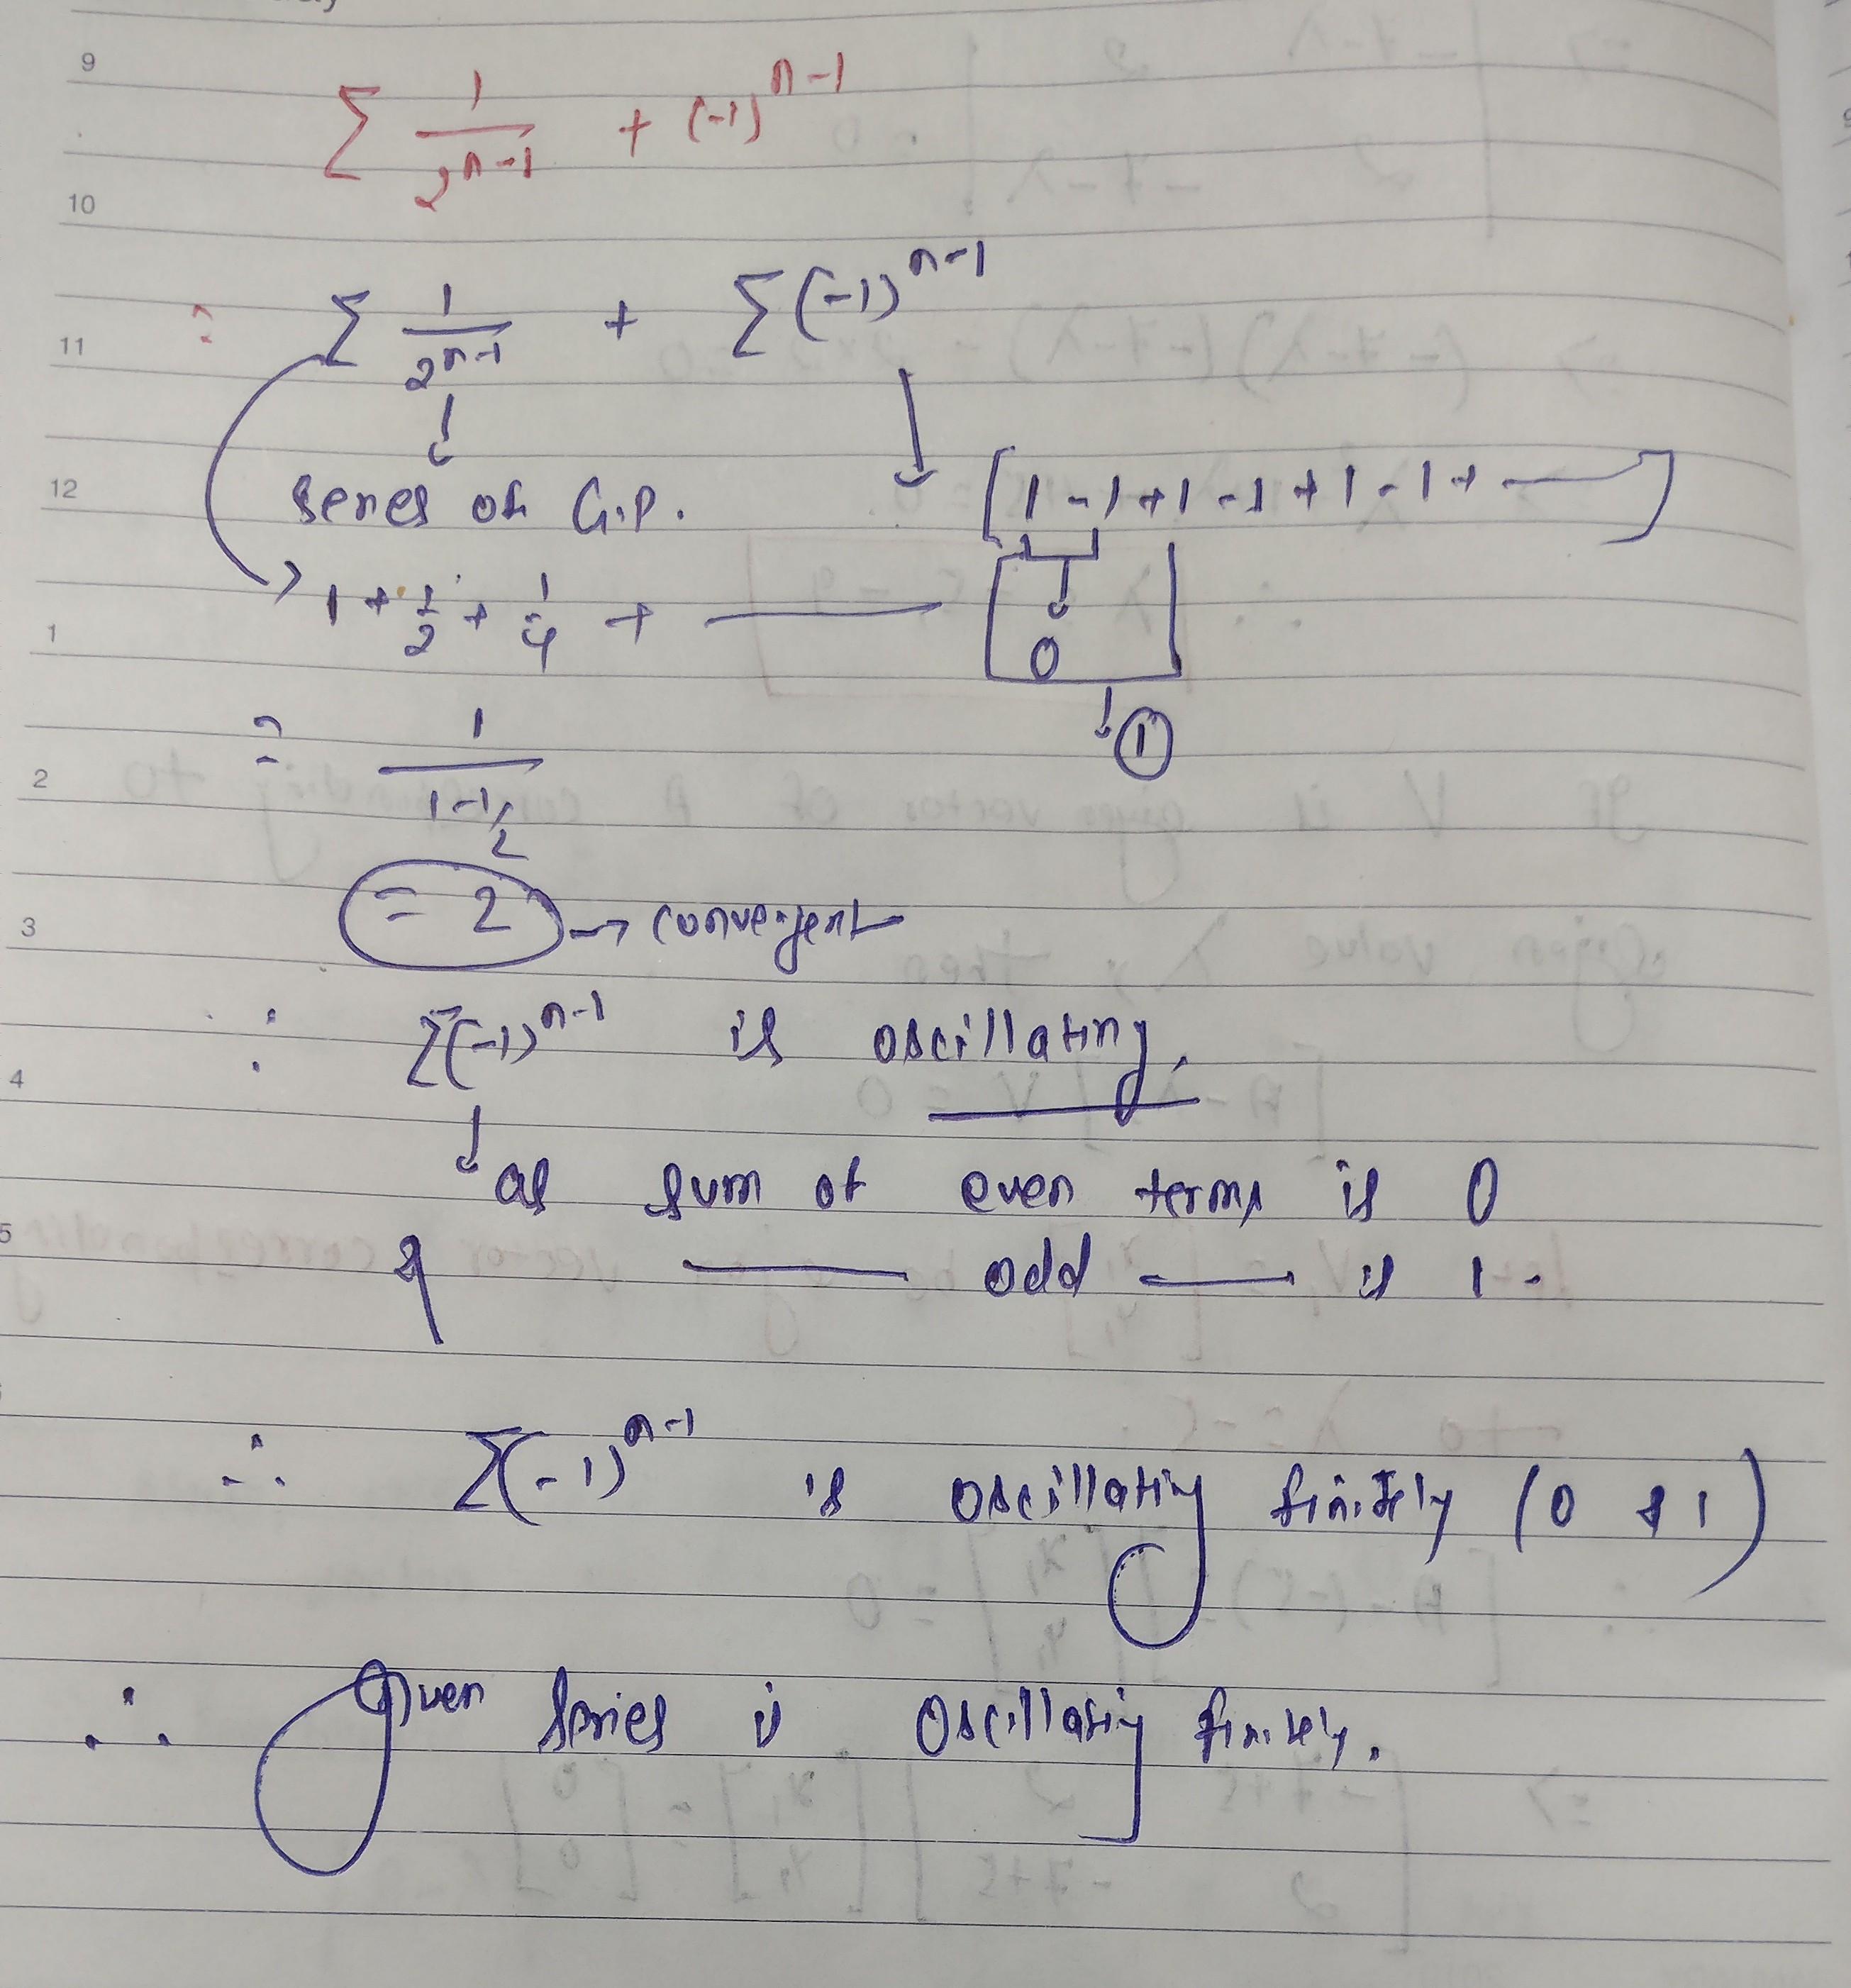 9
∑ 1/2^(n-1) + (-1)^(n-1)
10
= ∑ 1/2^(n-1) + ∑(-1)^(n-1)
11
series of G.P. [1-1+1-1+1-1+ —]
12
1 + 1/2 + 1/4 + —
0
1
= 1/(1-1/2)
①
2
= 2 → convergent
3
∴ ∑(-1)^(n-1) is oscillating.
4
as sum of even terms is 0
5
& — odd — is 1.
∴ ∑(-1)^(n-1) is oscillating finitely (0 & 1)
∴ Given series is oscillating finitely.